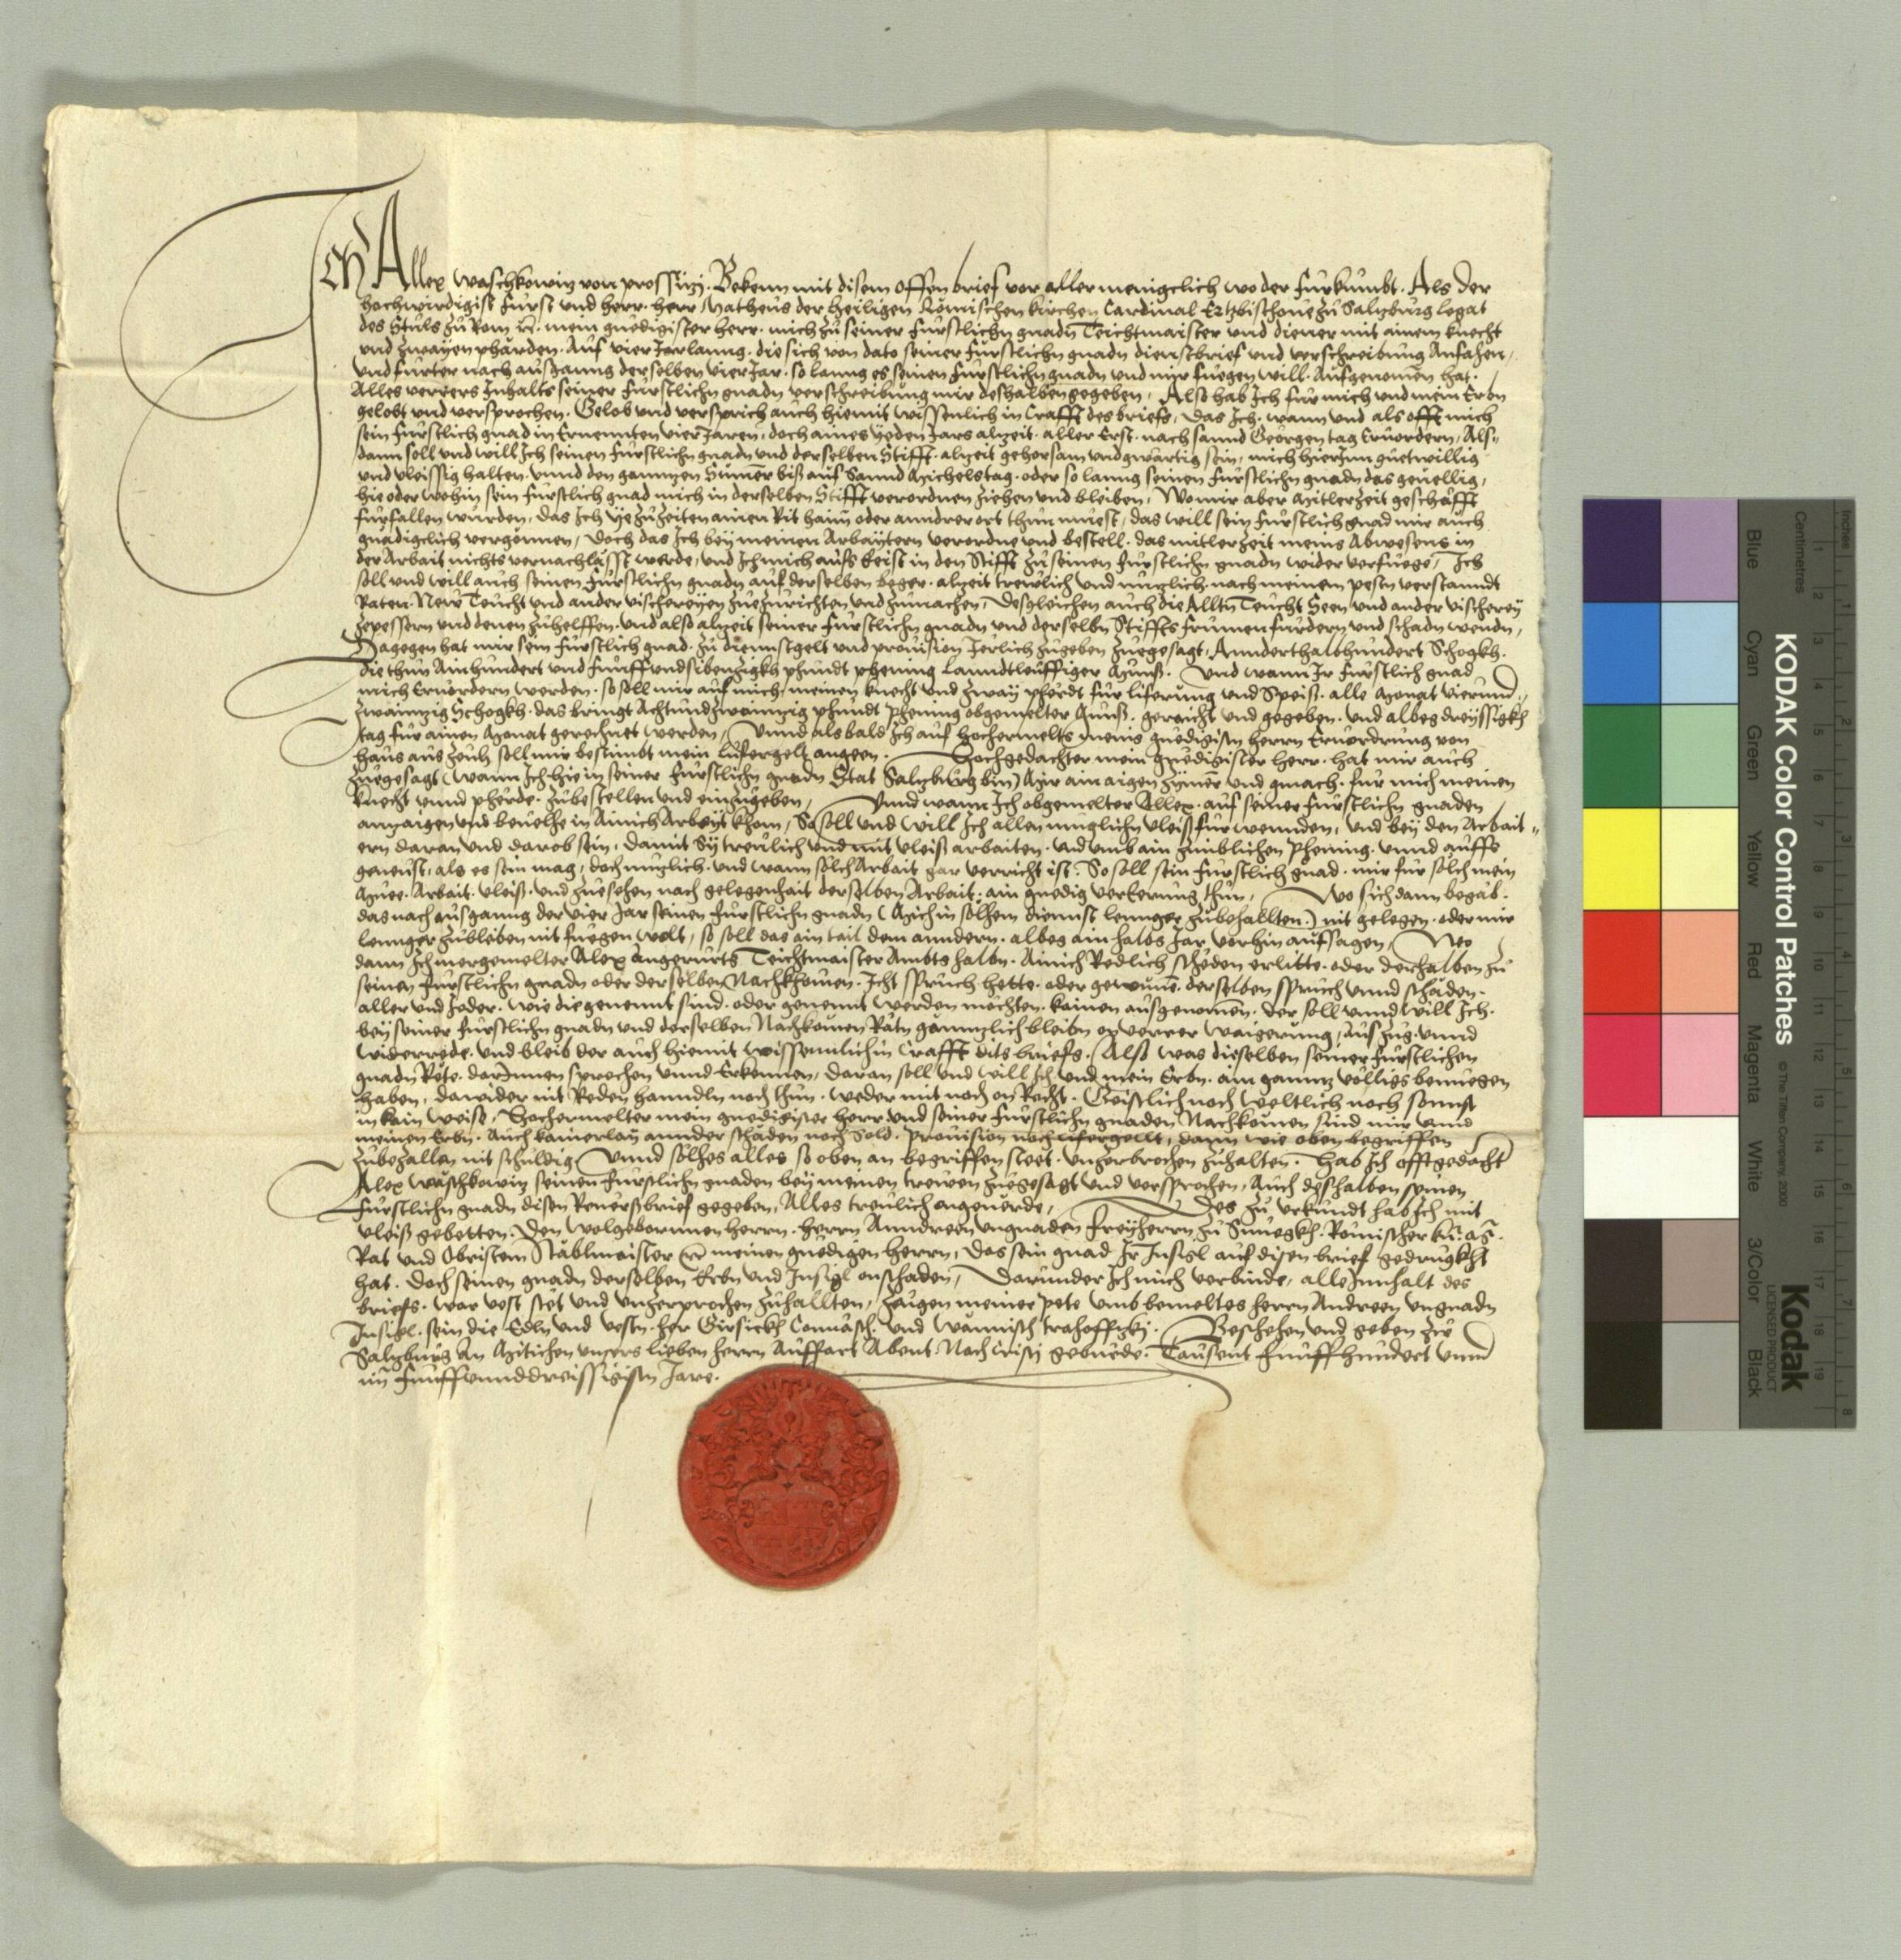 Ich Allex Waschkowitz von prossitzj. Bekenn mit disem offen brief vor aller menigclich wo der fürkumbt. Als der
hochwirdigist Fürst und herr. herr Matheus der heiligen Römischen kirchen Cardinal Ertzbischoue zu Saltzburg legat
des Stuls zu Rom etc. mein gnedigister herr. mich zu seiner fürstlichn gnadn Teichtmaister und diener mit ainem knecht
und zwayen phärden. Auf vier Jar lanng. die sich von dato seiner fürstlichn gnadn dienstbrief und verschreibung Anfahen,
und fürter nach ausganng derselben vier Jar. so lanng es seinen fürstlichn gnadn und mir fuegen will. Aufgenomen hat.
Alles verrers Inhalts seiner fürstlichn gnadn verschreibung mir deshalben gegeben, Also hab Ich für mich und mein Erbn
gelobt und versprochen. Gelob und versprich auch hiemit wissenlich in Crafft des briefs, Das Ich. wann und als offt mich
sein fürstlich gnad in Ernennten vier Jaren, doch aines yeden Jars alzeit. aller Erst. nach sannd Georgen tag Eruordern, Als-
dann soll und will Ich seinen fürstlichn gnadn und derselben Stifft. alzeit gehorsam und gwärtig sein, mich hierjnn guetwillig
und vleissig halten. unnd den ganntzen Sumer biß auf Sannd Michelstag. oder so lanng seinen fürstlichn gnadn das geuellig,
hie oder wohin sein fürstlich gnad mich in derselben Stifft verordnen ziehen und bleiben, Wo mir aber mitlerzeit geschäfft
fürfallen wurden, das Ich ye zuzeiten ainen Rit haim oder anndrer ort thun müest, das will sein fürstlich gnad mir auch
gnädigclich vergönnen, doch das Ich bey meinen Arbaytern verordne und bestell. das mitlerzeit meins Abwesens in
der Arbait nichts vernachlässt werde, und Ich mich aufs Erist in den Stifft zu seinen fürstlichn gnadn wider verfuege, Ich
soll und will auch seinen fürstlichn gnadn auf derselben beger. alzeit trewlich und nutzlich. nach meinem pestn verstanndt
Raten. New Teucht und ander vischereyen zuezurichten und zumachen, Desgleichen auch die Alltn Teucht Seen und ander vischerey
zepessern und denen zuhelffen. und also alzeit seiner fürstlichn gnadn und derselbn Stiffts frumen fürdern und schadn wendn,
Dagegen hat mir sein fürstlich gnad. zu diennstgelt und prouision Jerlich zugeben zuegesagt, Anndert halbhundert Schogkh.
die thun Ainhundert und funffundsibenzigkh phundt phening lanndtleuffiger Müns. Und wann Jr fürstlich gnad
mich Eruordern werden. so soll mir auf mich, meinen knecht und zway pherdt für liferung und Speiß. alle Monat vierund-
zwaintzig Schogkh. das bringt Achtundzwaintzig phundt phening obgemelter Münß. geraicht und gegeben. und albeg dreyssigkh
tag für ainen Monat gerechnet werden, Unnd als bald Ich auf hochermelts meins gnedigistn herrn Eruordrung von
haus aus zeuh, soll mir bestimbt mein lifergelt angeen. Hochgedachter mein gnedigister herr. hat mir auch
zuegesagt (wann Ich hie in seiner fürstlichn gnadn Stat Saltzburg bin) Mir ain aigen zymer und gmach. für mich meinen
knecht unnd pherde. zubestellen und einzugeben, Unnd wann Ich obgemelter Allex. auf seiner fürstlichn gnaden
anzaigen und beuelhe in Ainich Arbayt khom, So soll und will Ich allen muglichn vleiß fürwennden, und bey den Arbait-
ern daran und darob sein, damit Sy treulich und mit vleiß arbaiten. und umb ain zimblichen phening. unnd auffs
genewist, als es sein mag, doch nutzlich. und wann sölch Arbait gar verricht ist. So soll sein fürstlich gnad. mir für sölch mein
Müee. Arbait. vleiß. und zuesehen nach gelegenhait derselben Arbait. ain gnedig vererung thun, Wo sich dann begäb.
das nach ausganng der vier Jar seinen fürstlichn gnadn (Mich in sölhem diennst lennger zubehallten) nit gelegen. oder mir
lennger zubleiben nit fuegen wolt, so soll das ain tail dem anndern. albeg ain halbs Jar vorhin aufsagen, Wo
dann Ich vorgemelter Alex angerürts Teichtmaister Ambts halbn. Ainich Redlich schäden erlitte. oder derhalben zu
seinen fürstlichn gnadn oder derselben Nachkhomen. Icht spruch hette. oder gewune. derselben spruch unnd schäden.
aller und Jeder. wie die genennt sind. oder genennt werden möchten. kainen ausgenomen. der soll unnd will Ich.
bey seiner fürstlichn gnadn und derselben Nachkomen Rätn gänntzlich bleibn on verrer waigerung, auszug. unnd
widerrede. und bleib der auch hiemit wissenntlich in Crafft dits briefs. Also was dieselben seiner fürstlichen
gnadn Räte. darInnen sprechen unnd Erkennen, daran soll und will Ich und mein Erbn. ain ganntz völligs benuegen
haben, dawider nit Reden hanndln noch thun. weder mit noch on Recht. Geistlich noch weltlich noch sonnst
in kain weise, Hochermelter mein gnedigister herr und seiner fürstlichn gnaden Nachkomen sind mir unnd
meinen Erbn. Auch kainerlay annder schäden noch Sold. prouision noch lifergellt, dann wie oben begriffen
zubezallen nit schuldig Unnd sölhes alles so oben an begriffen steet. unzerbrochen zuhalten. hab Ich offtgedacht
Alex Waschkowitz seinen fürstlichn gnaden bey meinen trewen zuegesagt und versprochen, Auch deshalben seinen
fürstlichn gnadn disen Reuerßbrief gegeben, Alles treulich ongeuerde, Des zu urkundt hab Ich mit
vleiß gebetten. Den wolgebornnen herrn. herrn Anndreen ungnaden freyherrn zu Suneckh. Römischer ku. Mt.
Rat und Obristem Stablmaister etc. meinen gnedigen herrn, Das sein gnad Jr Insigl auf disen brief gedrugkht
hat. doch seinen gnadn derselben Erbn und Insigl onschaden, Darunder Ich mich verbinde, alles Innhalt des
briefs. war vest stet und unzerprochen zuhallten, Zeugen meiner pete umb bemeltes herrn Andreen ungnadn
Insigl. sein die Edln und vestn. her Girsickh und Beschehen und geben zu
Saltzburg An Mitichen unsers lieben herrn Auffart Abent Nach Cristj geburde. Tausent funffhundert unnd
im funffunnddreissigistn Jare.
KODAK Color Control Patches
© The Tiffen Company, 2000
Kodak
LICENSED PRODUCT
Blue
Cyan
Green
Yellow
Red
Magenta
White
3/Color
Black
Inches
Centimetres
1 2 3 4 5 6 7 8
1 2 3 4 5 6 7 8 9 10 11 12 13 14 15 16 17 18 19